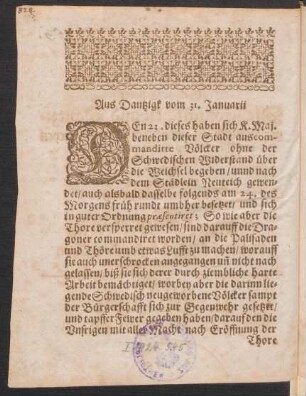 Aus Dantzigk vom 31. Januarii
DEn 22. dieses haben sich K. Maj.
beneben dieser Stadt auscom-
mandirte Völcker ohne der
Schwedischen Widerstand über
die Weichsel begeben / unnd nach
dem Städlein Neuteich gewen-
det / auch alsbald dasselbe folgends am 24. des
Morgens früh runde umbher besetzet / und sich
in guter Ordnung præsentiret; So wie aber die
Thore versperret gewesen / sind darauff die Dra-
goner commandiret worden / an die Palisaden
und Thöre umb etwas Lufft zu machen / worauff
sie auch unerschrocken angegangen uñ nicht nach
gelassen / biß sie sich derer durch ziembliche harte
Arbeit bemächtiget / worbey aber die darinn lie-
gende Schwedisch neugeworbene Völcker sampt
der Bürgerschafft sich zur Gegenwehr gesetzt /
und tapffer Fewer gegeben haben / darauf den die
Unsrigen mit aller Macht nach Eröffnung der
Thore